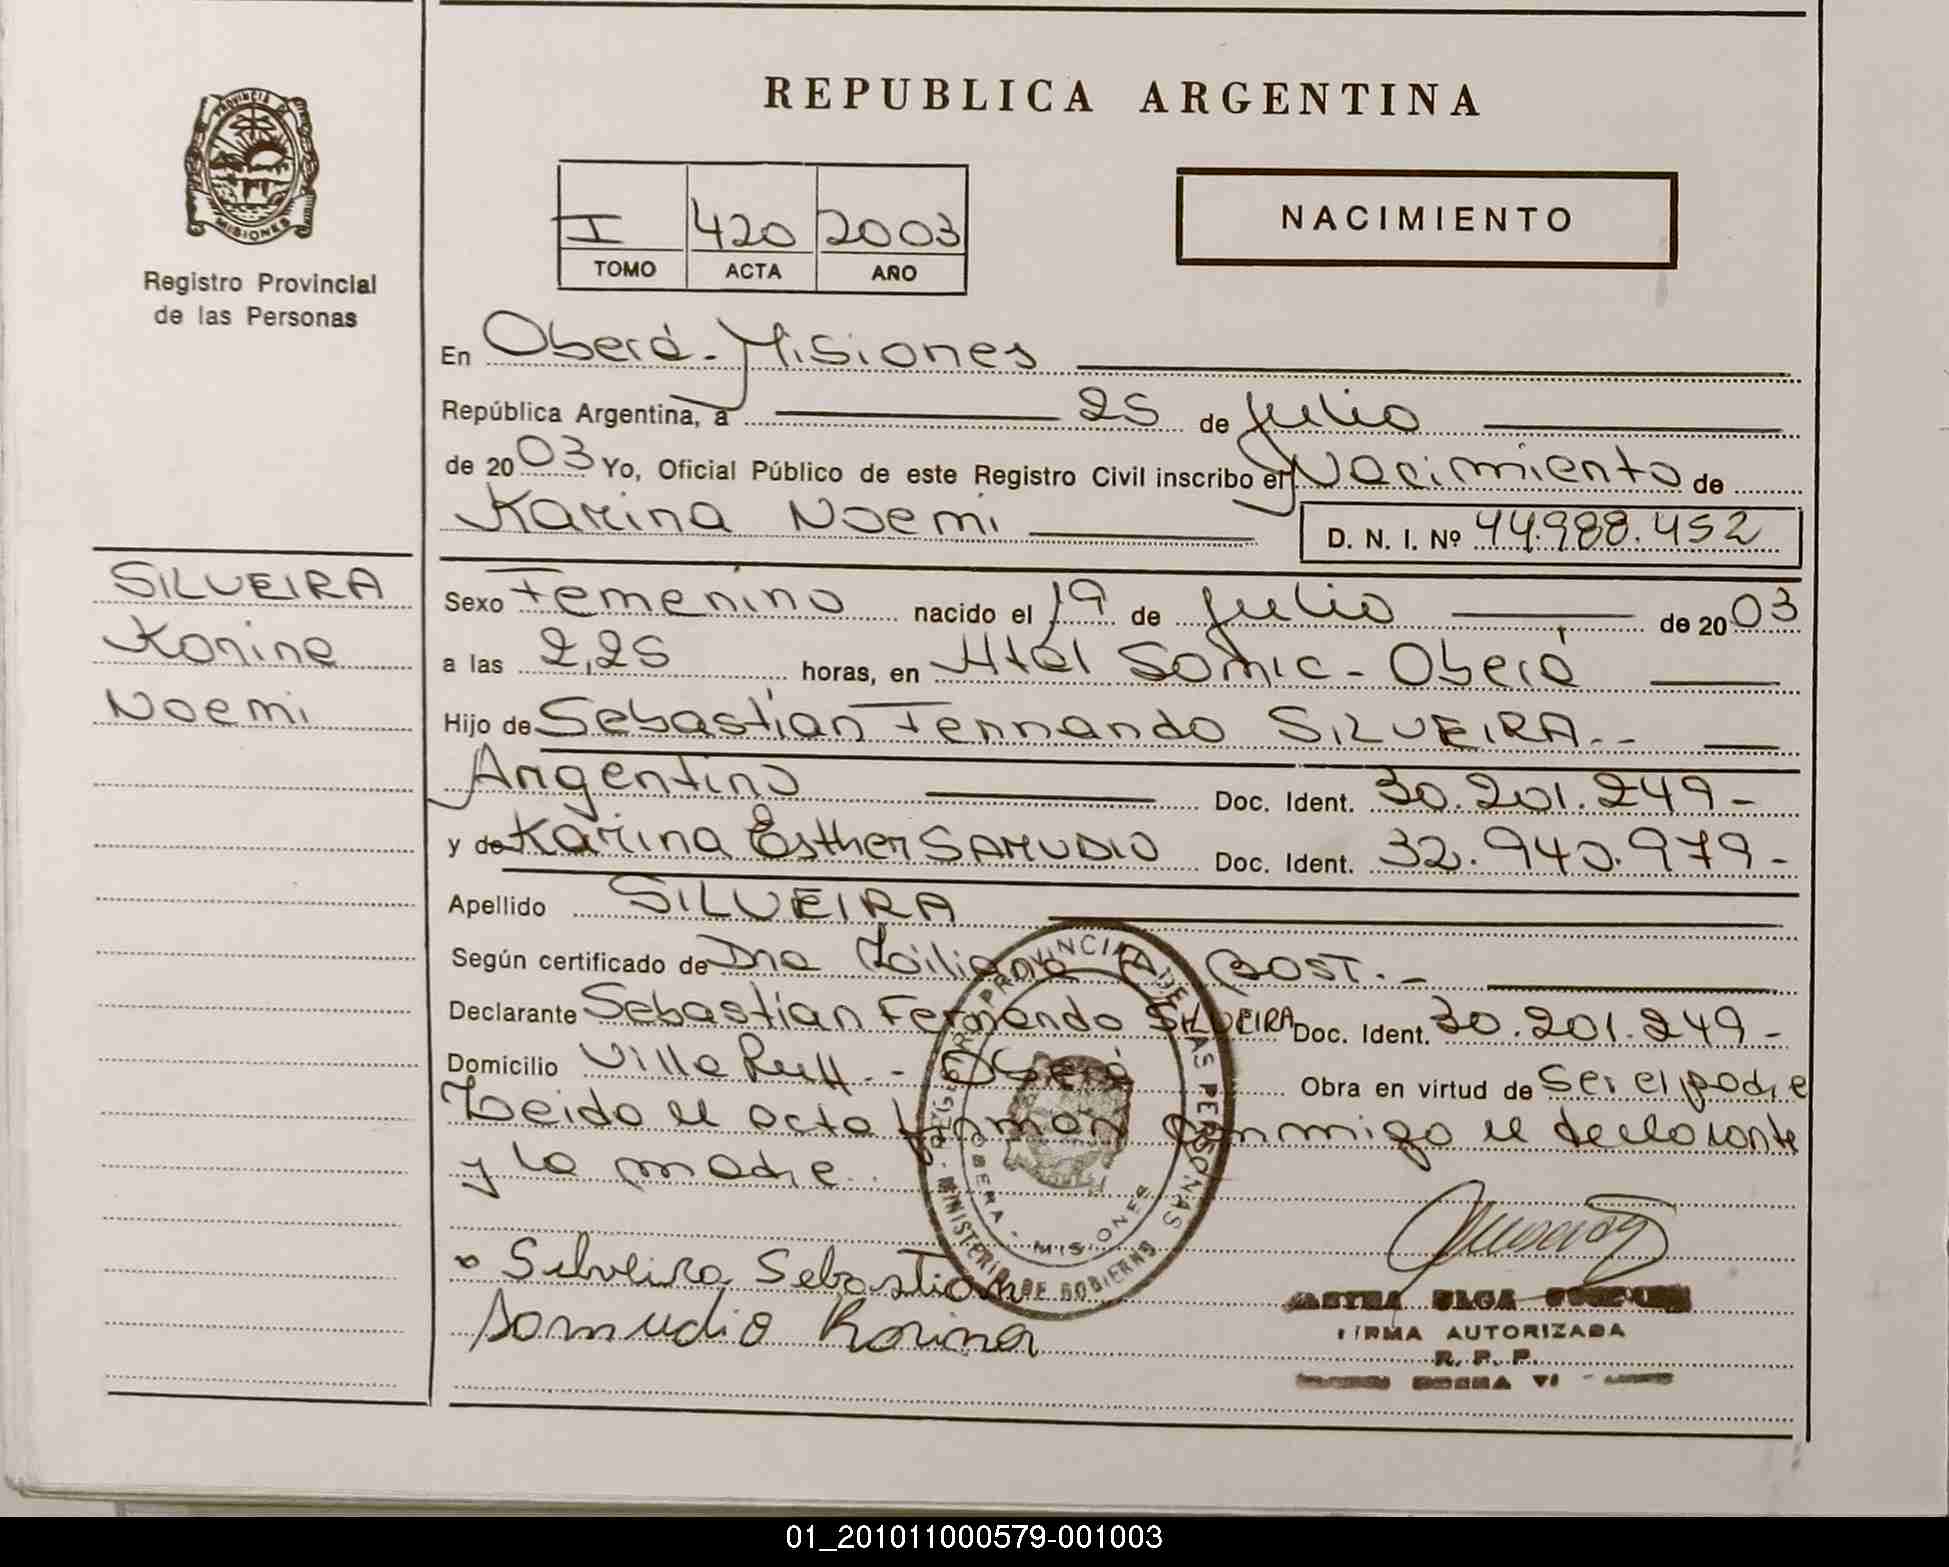 REPUBLICA ARGENTINA
PROVINCIA DE
MISIONES
Registro Provincial
de las Personas
I 420 2003
TOMO ACTA AÑO
NACIMIENTO
En Oberá - Misiones
República Argentina, a 25 de Julio
de 2003 Yo, Oficial Público de este Registro Civil inscribo el Nacimiento de
Karina Noemi
D. N. I. Nº 44.988.452
SILVEIRA
Karina
Noemi
Sexo Femenino nacido el 19 de Julio de 2003
a las 2,25 horas, en Htal Samic - Oberá
Hijo de Sebastian Fernando SILVEIRA.--
Argentino Doc. Ident. 30.201.249-
y de Karina Esther SAMUDIO Doc. Ident. 32.940.979-
Apellido SILVEIRA
Según certificado de Dra Liliana BOST.-
Declarante Sebastian Fernando SILVEIRA Doc. Ident. 30.201.249-
Domicilio Villa Ruff.-- Oberá Obra en virtud de Ser el padre
Leido el acta firman conmigo el declarante
y la madre.
REGISTRO PROVINCIAL DE LAS PERSONAS
MINISTERIO DE GOBIERNO
OBERA - MISIONES
Silveira Sebastian
Samudio Karina
OLGA
FIRMA AUTORIZADA
R. P. P.
01_201011000579-001003